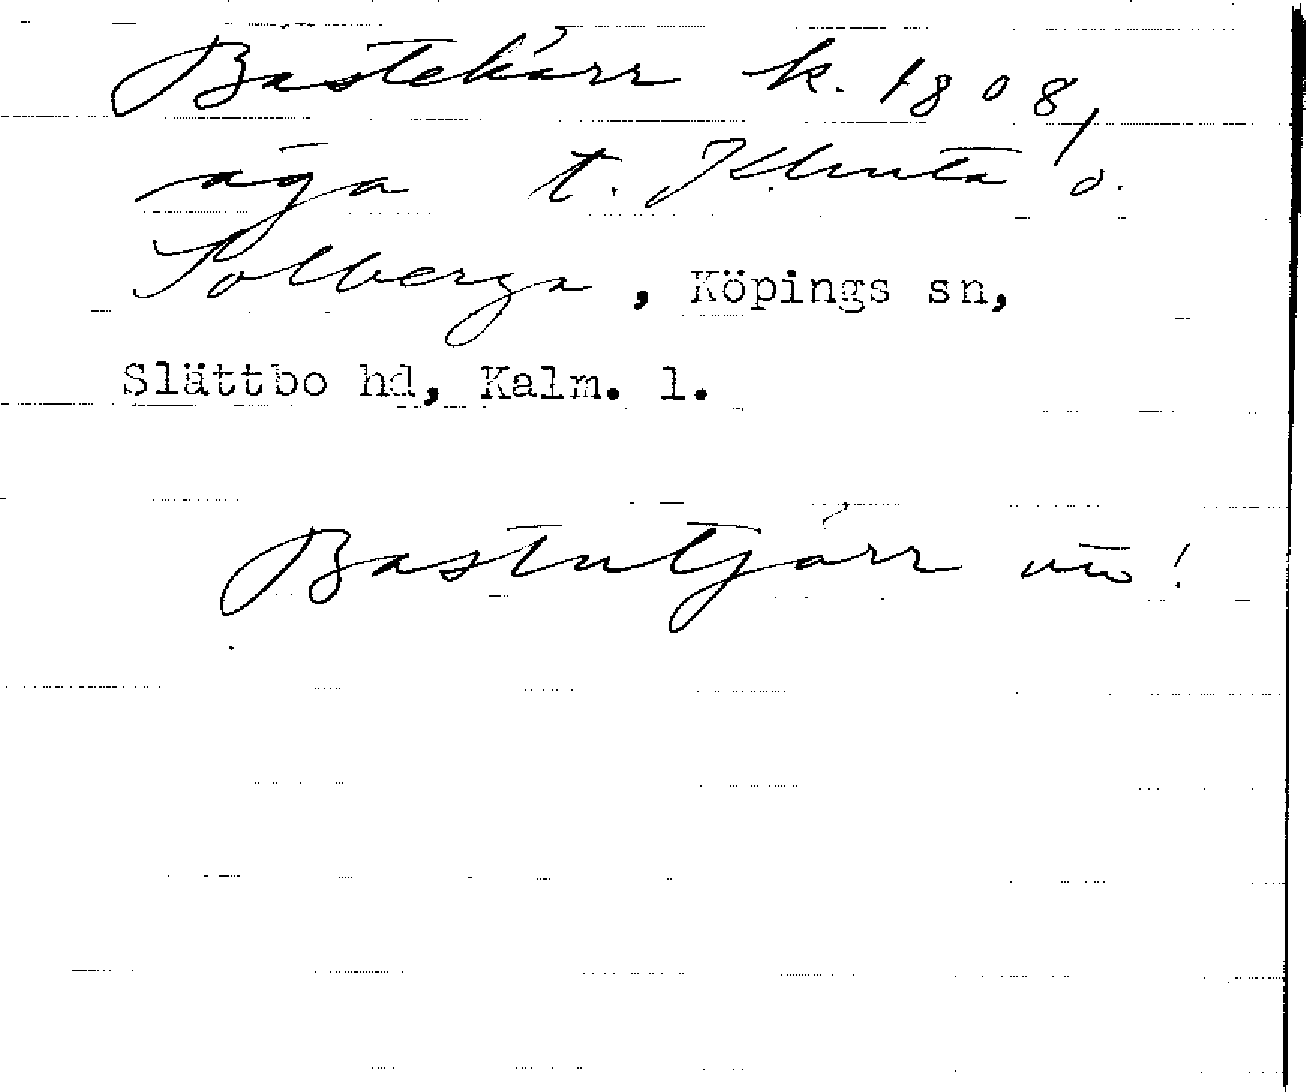 Bastekärr k. 1808,
äga t. Klinta o.
Solberga, Köpings sn,
Slättbo hd, Kalm. l.
Bastutjärr